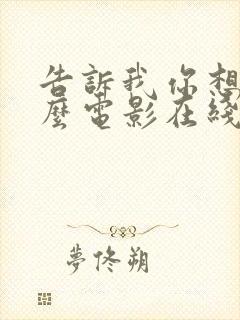 告訴我你想
麼電影在綫
夢佟朔